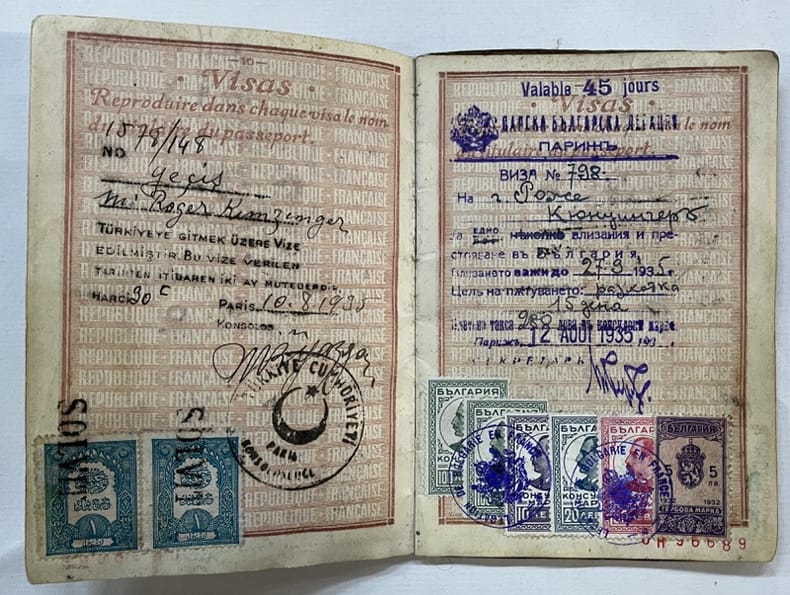 — 10 —
Visas
Reproduire dans chaque visa le nom
du titulaire du passeport.
1578/148
NO
geçiş
Mr Roger
TÜRKİYEYE GİTMEK ÜZERE VİZE
EDİLMİŞTİR. BU VİZE VERİLEN
TARİHTEN İTİBAREN İKİ AY MUTEBERDİR.
HARCI 30 C
PARİS 10.8.1935
KONSOLOS
TÜRKİYE CUMHURİYETİ
PARİS
KONSOLOSLUGU
Valable 45 jours
Visas
Reproduire dans chaque visa le nom
du titulaire du passeport.
ЦАРСКА БЪЛГАРСКА ЛЕГАЦИЯ
ПАРИЖЪ
ВИЗА № 798
На г. Роже
Кюнцингеръ
за едно влизания и пре-
стояване въ България,
Влизането важи до 27.9.1935 г.
Цель на пѫтуването: разходка
15 дена
Парижъ, 12 AOUT 1935 193
СЕКРЕТАРЬ
БЪЛГАРИЯ
БЪЛГАРИЯ
БЪЛГАРИЯ
БЪЛГАРИЯ
БЪЛГАРИЯ
БЪЛГАРИЯ
5 5
ЛВ
1932
ГЕРБОВА МАРКА
LEGATION DE BULGARIE EN FRANCE
LEGATION DE BULGARIE EN FRANCE
96689